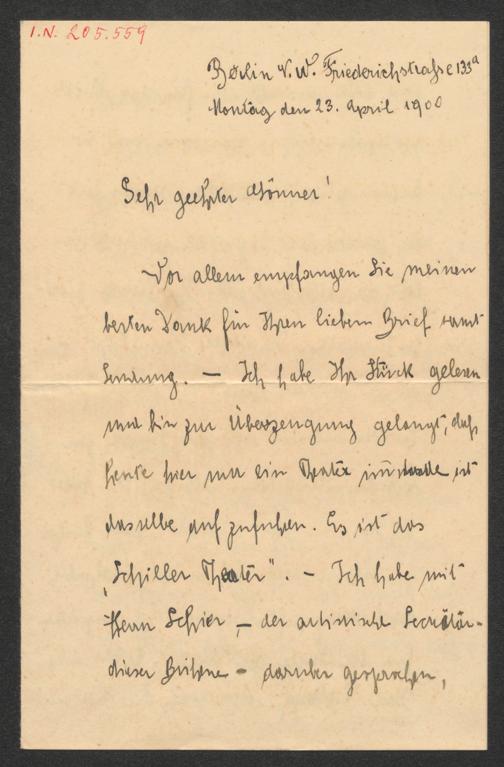 I.N. 205.559
Berlin N.W. Friederichstraße 133a
Montag den 23. April 1900
Sehr geehrter Gönner!
Vor allem empfangen Sie meinen
besten Dank für Ihren liebem Brief samt
Sendung. — Ich habe Ihr Stück gelesen
und bin zur Überzeugung gelangt, daß
heute hier nur ein Theater im stande ist
dasselbe aufzufuhren. Es ist das
„Schiller Theater". — Ich habe mit
Herrn Schier, — der artistische Secretär -
dieser Bühne - daruber gesprochen,